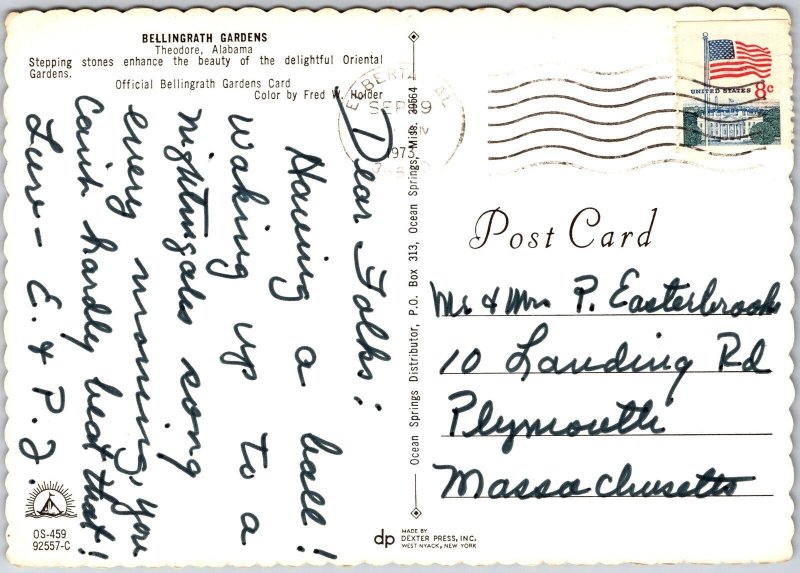 BELLINGRATH GARDENS
Theodore, Alabama
Stepping stones enhance the beauty of the delightful Oriental
Gardens.
Official Bellingrath Gardens Card
Color by Fred W. Holder
Dear Folks!
Having a ball!
Waking up to a
nightingales song
every morning, you
can't hardly beat that!
Luv - E. & P. J.
OS-459
92557-C
Ocean Springs Distributor, P.O. Box 313, Ocean Springs, Miss. 39564
dp
MADE BY
DEXTER PRESS, INC.
WEST NYACK, NEW YORK
ELBERTA, AL
SEP 19
1973
UNITED STATES 8c
Post Card
Mr & Mrs P. Easterbrooks
10 Landing Rd
Plymouth
Massachusetts